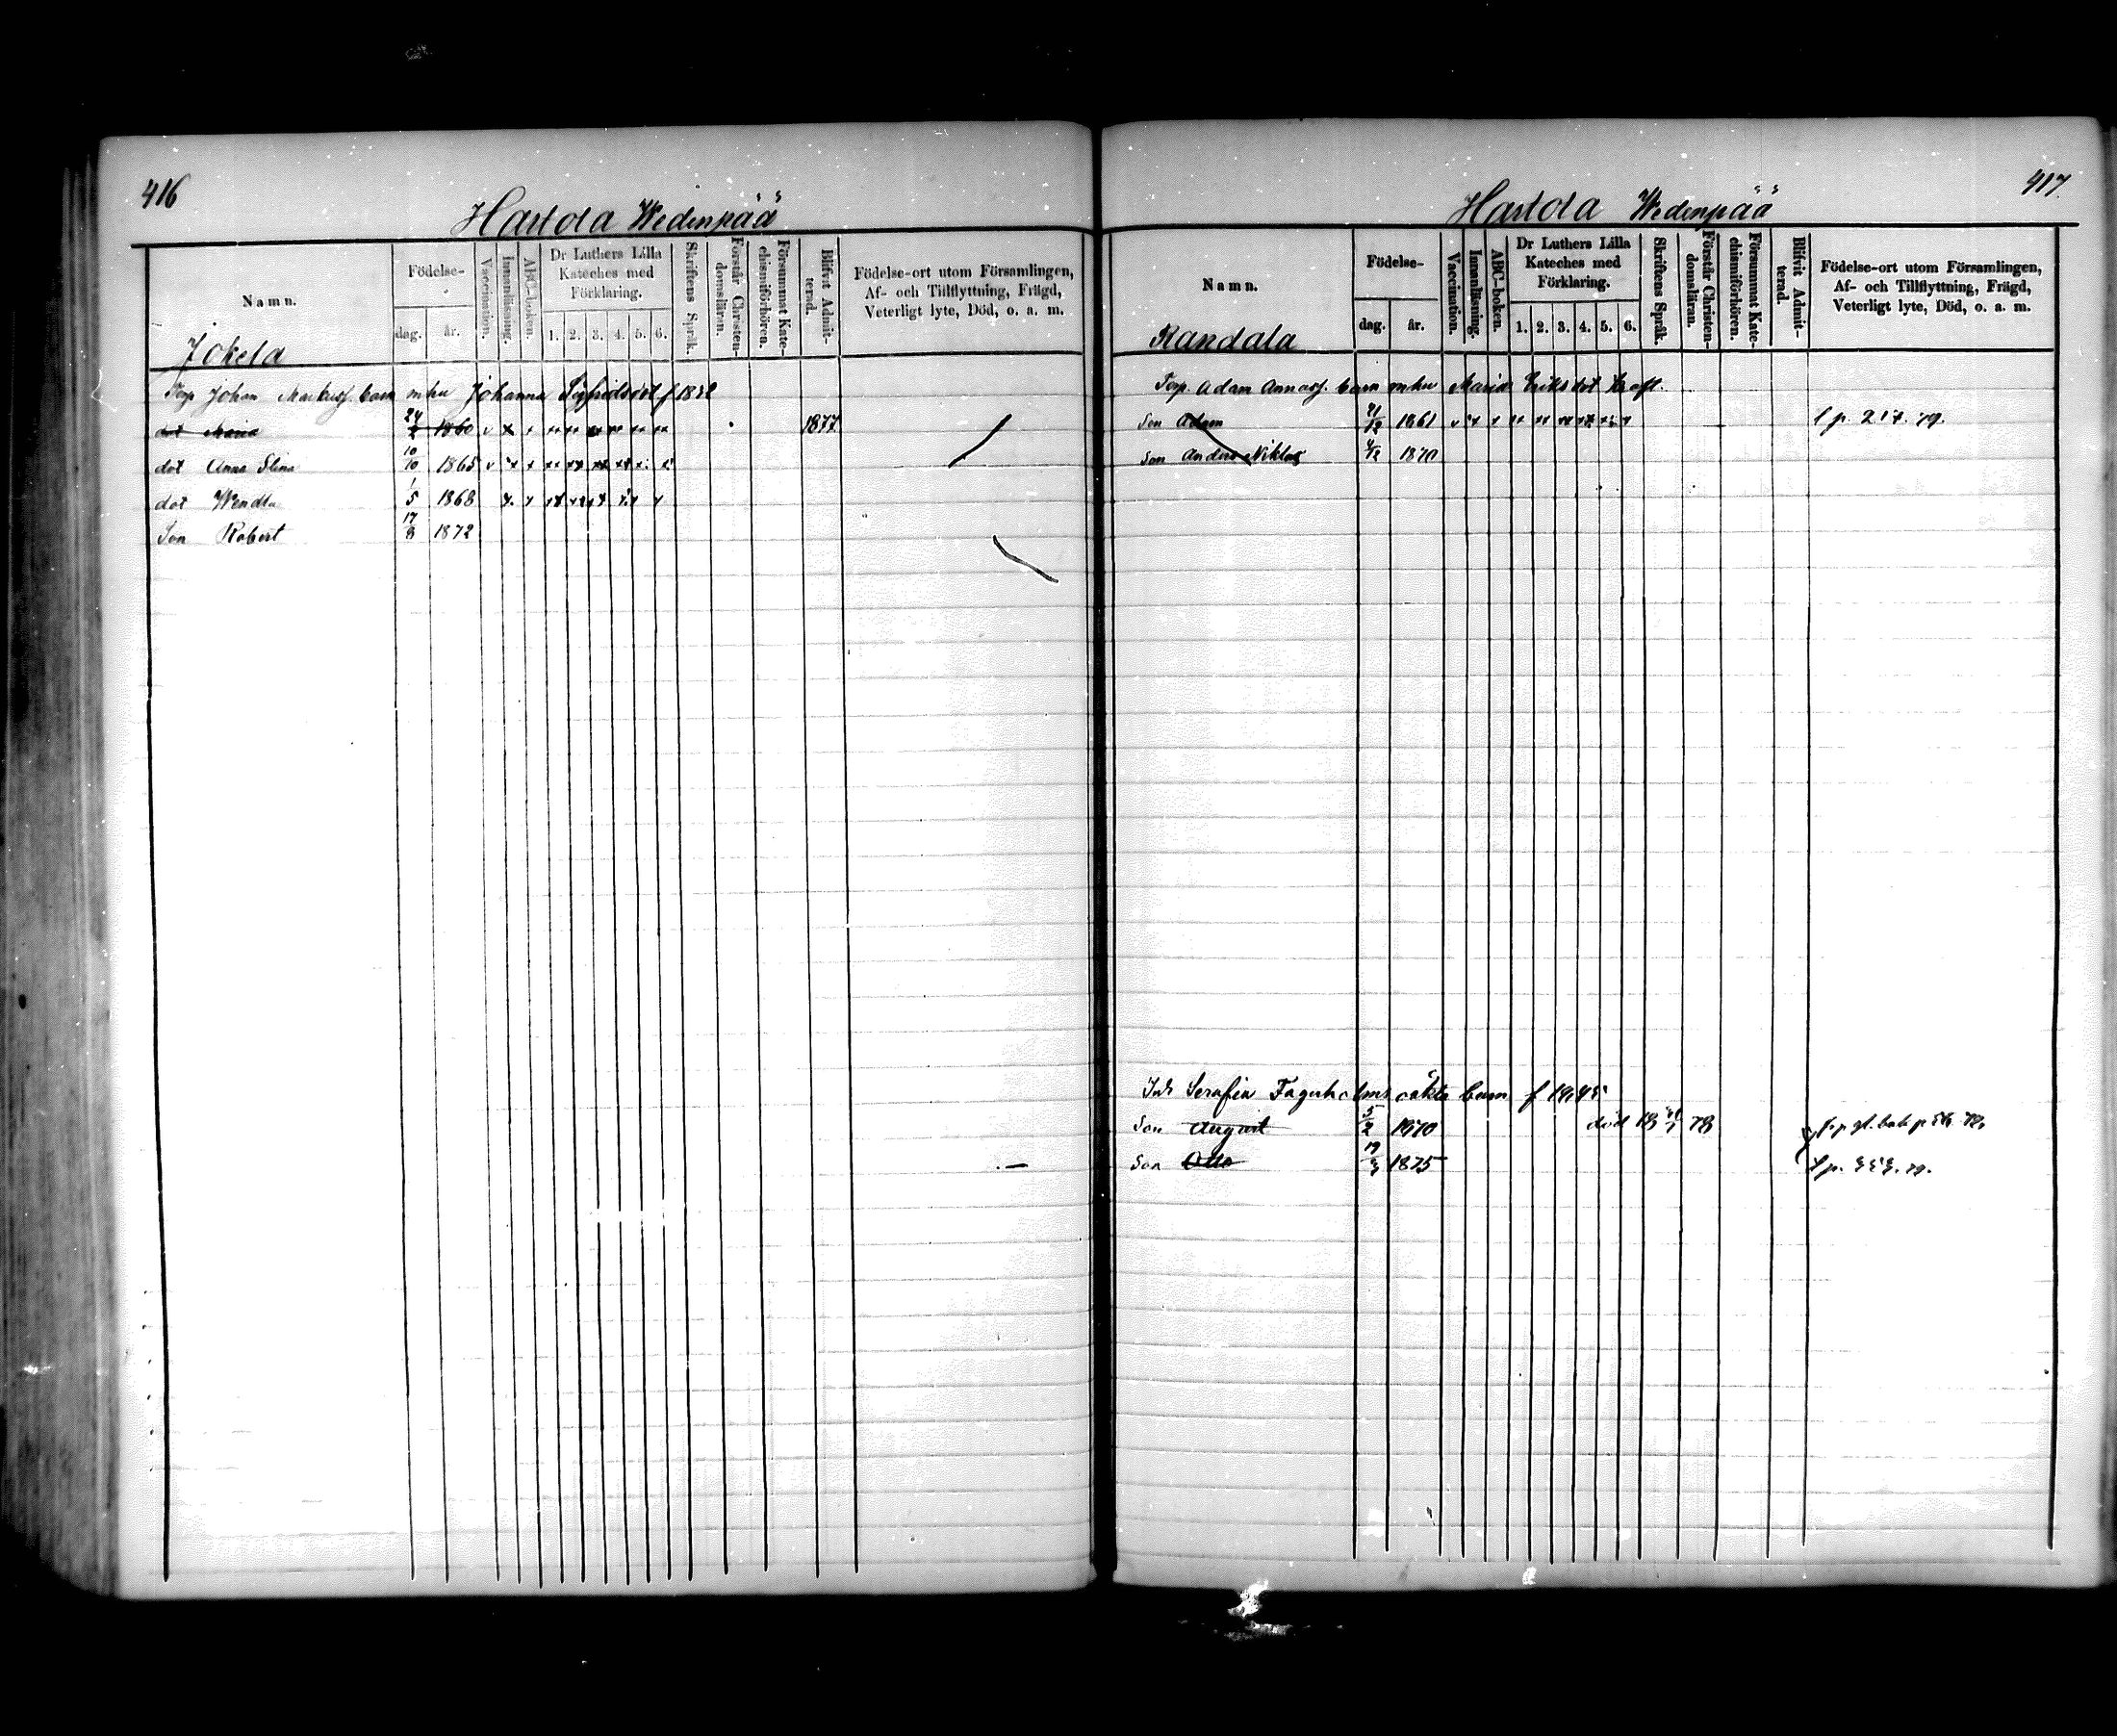 416
Hartola Wedenpää
Namn.
Födelse-
dag.
år.
Vaccination.
Innanläsning.
ABC-boken.
Dr Luthers Lilla
Kateches med
Förklaring.
1. 2. 3. 4. 5. 6.
Skriftens Språk.
Förstår Christen-
domsläran.
Försummat Kate-
chismiförhören.
Blifvit Admit-
terad.
Födelse-ort utom Församlingen,
Af- och Tillflyttning, Frägd,
Veterligt lyte, Död, o. a. m.
Jokela
Torp Johan Markussz barn mhu Johanna Sigfridsdot f 18
dot Maria 24/2 1860 1877
dot Anna Stina 10/10 1865
dot Wendla 1/5 1868
Son Robert 17/8 1872
417.
Hartola Wedenpää
Namn.
Födelse-
dag.
år.
Vaccination.
Innanläsning.
ABC-boken.
Dr Luthers Lilla
Kateches med
Förklaring.
1. 2. 3. 4. 5. 6.
Skriftens Språk.
Förstår Christen-
domsläran.
Försummat Kate-
chismiförhören.
Blifvit Admit-
terad.
Födelse-ort utom Församlingen,
Af- och Tillflyttning, Frägd,
Veterligt lyte, Död, o. a. m.
Kandala
Torp. Adam barn mhu Maria Eriksdot Kraft.
Son Adam 21/12 1861
Son Anders Niklas 4/12 1870
Inh Serafia Fagerholms oäkta barn f 1845
Son August 5/2 1870 död 78
Son Otto 19/3 1875